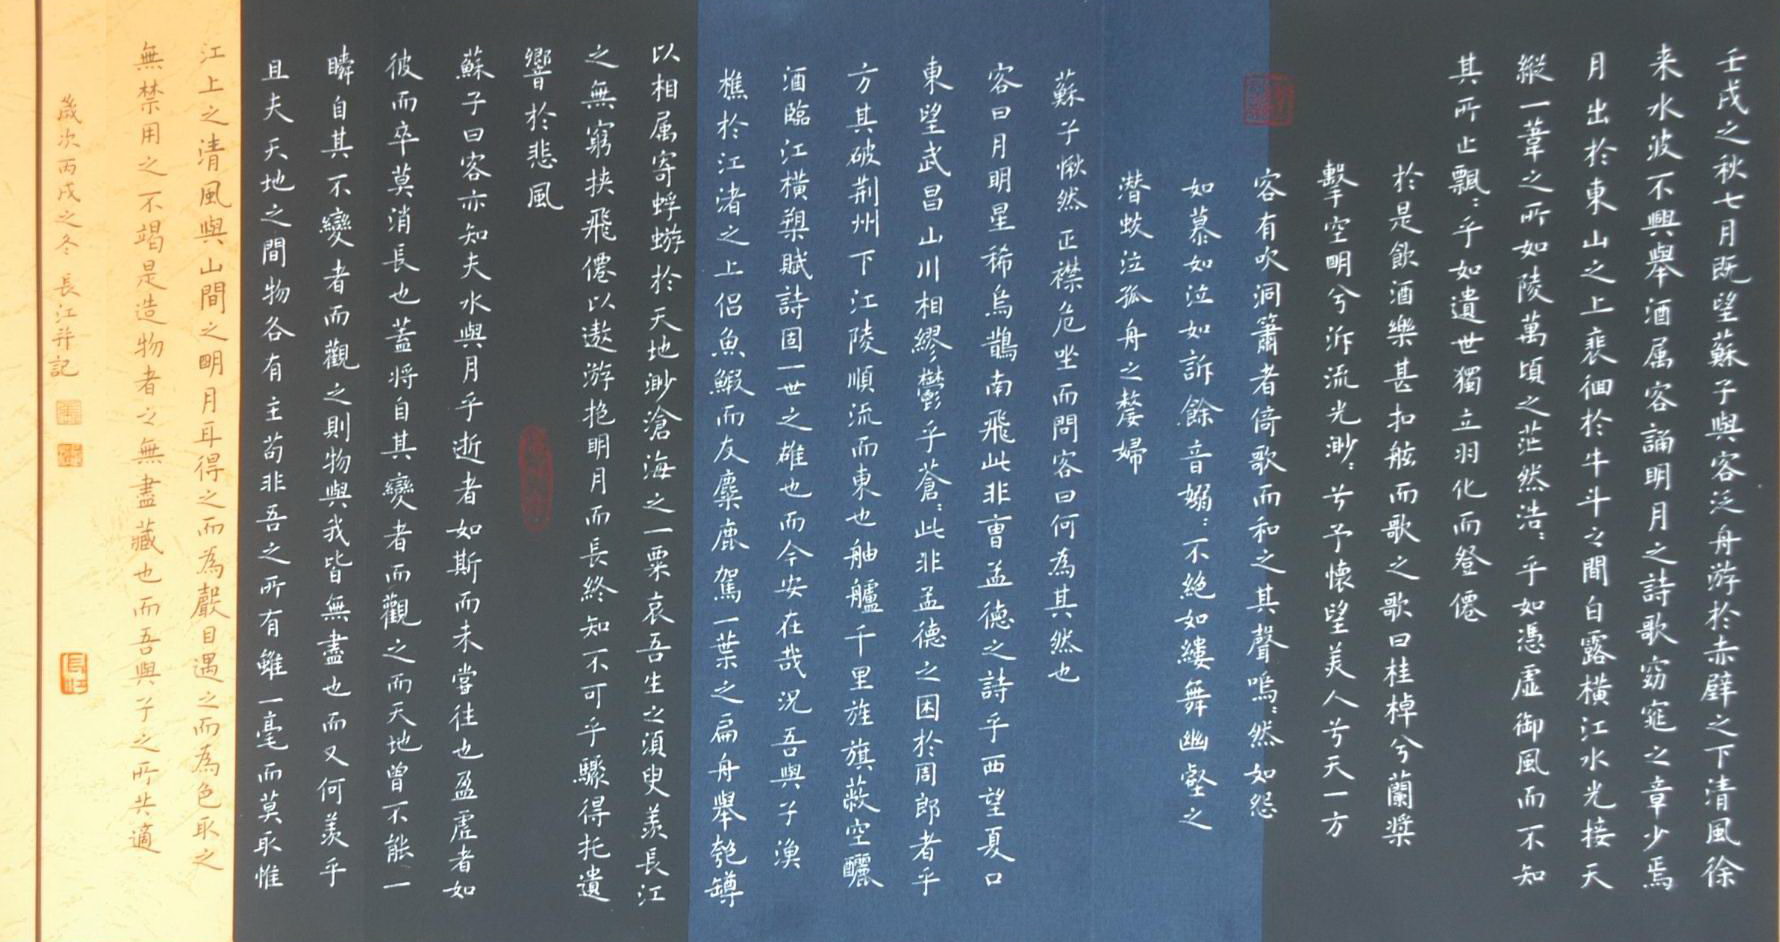 壬戌之秋七月既望蘇子與客泛舟游於赤壁之下清風徐
来水波不興舉酒属客誦明月之詩歌窈窕之章少焉
月出於東山之上裴徊於牛斗之間白露橫江水光接天
縱一葦之所如陵萬頃之茫然浩:乎如馮虛御風而不知
其所止飄:乎如遺世獨立羽化而登僊
於是飲酒樂甚扣舷而歌之歌曰桂棹兮蘭槳
擊空明兮泝流光渺:兮予懷望美人兮天一方
客有吹洞簫者倚歌而和之其聲嗚:然如怨
如慕如泣如訴餘音嫋:不絕如縷舞幽壑之
潛蛟泣孤舟之嫠婦
蘇子愀然正襟危坐而問客曰何為其然也
客曰月明星稀烏鵲南飛此非曹孟德之詩乎西望夏口
東望武昌山川相繆鬱乎蒼:此非孟德之困於周郎者乎
方其破荆州下江陵順流而東也舳艫千里旌旗蔽空釃
酒臨江橫槊賦詩固一世之雄也而今安在哉況吾與子漁
樵於江渚之上侣魚鰕而友麋鹿駕一葉之扁舟舉匏罇
以相属寄蜉蝣於天地渺滄海之一粟哀吾生之須臾羨長江
之無窮挟飛僊以遨游抱明月而長終知不可乎驟得托遺
響於悲風
蘇子曰客亦知夫水與月乎逝者如斯而未嘗往也盈虛者如
彼而卒莫消長也蓋将自其變者而觀之而天地曾不能一
瞬自其不變者而觀之則物與我皆無盡也而又何羨乎
且夫天地之間物各有主苟非吾之所有雖一毫而莫取惟
江上之清風與山間之明月耳得之而為聲目遇之而為色取之
無禁用之不竭是造物者之無盡藏也而吾與子之所共適
歲次丙戌之冬 長江并記